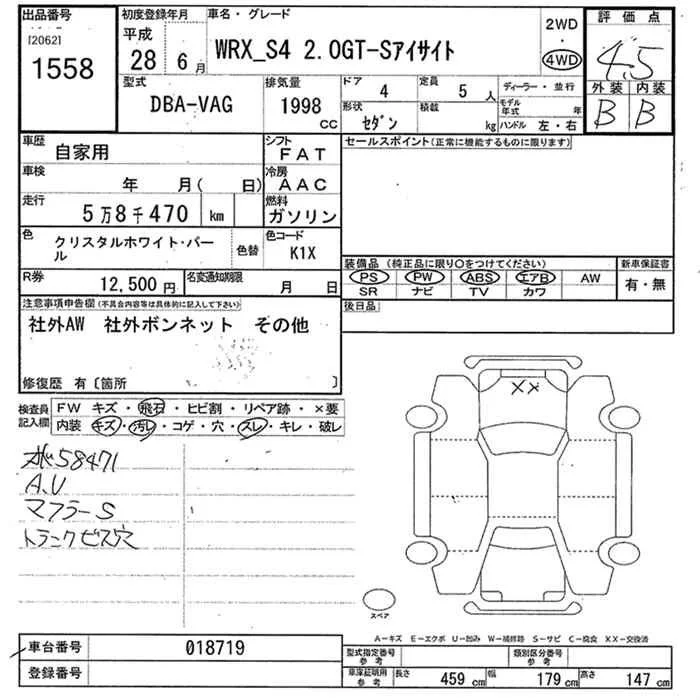 出品番号
[2062]
1558
初度登録年月
平成
28 6 月
車名・グレード
WRX_S4 2.0GT-Sアイサイト
2WD
4WD
評価点
4.5
外装 内装
B B
型式
DBA-VAG
排気量
1998
CC
ドア
4
定員
5 人
形状
セダン
積載
kg
ディーラー・並行
モデル年式
年
ハンドル 左・右
車歴
自家用
シフト
FAT
車検
年 月( 日)
冷房
AAC
走行
5万8千470 km
燃料
ガソリン
色
クリスタルホワイト・パール
色替
色コード
K1X
R券
12,500円
名変通知期限
月 日
セールスポイント(正常に機能するものに限ります)
装備品 (純正品に限り○をつけてください)
新車保証書
PS PW ABS エアB AW
SR ナビ TV カワ
有・無
後日品
注意事項申告欄(不具合内容等は具体的に記入して下さい)
社外AW 社外ボンネット その他
修復歴 有〔箇所 〕
検査員
記入欄
FW キズ・飛石・ヒビ割・リペア跡・×要
内装 キズ・汚レ・コゲ・穴・スレ・キレ・破レ
58471
A.U
マフラーS
トランクビス穴
XX
スペア
A-キズ E-エクボ U-凹み W-補修跡 S-サビ C-腐食 XX-交換済
車台番号
018719
登録番号
型式指定番号
参考
類別区分番号
参考
車庫証明用
参考
長さ
459 cm
幅
179 cm
高さ
147 cm